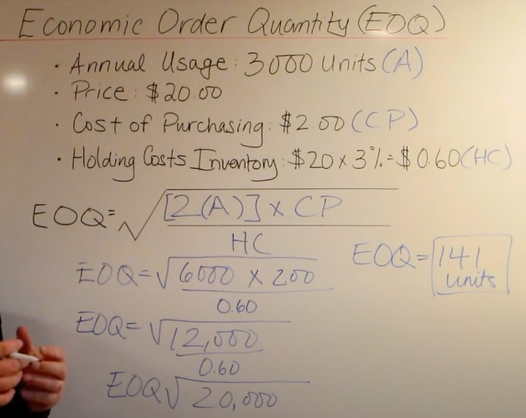 Economic Order Quantity (EOQ)
· Annual Usage: 3000 Units (A)
· Price: $20.00
· Cost of Purchasing: $2.00 (CP)
· Holding Costs Inventory: $20 x 3% = $0.60 (HC)
EOQ = √[2(A)] x CP
HC
EOQ = √6000 x 200
0.60
EOQ = √12,000
0.60
EOQ √20,000
EOQ = 141
units